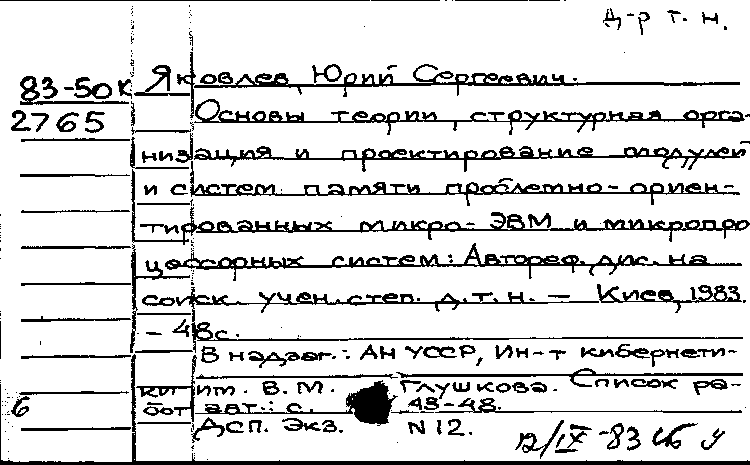 д-р т. н.
83-50к Яковлев, Юрий Сергеевич.
2765 Основы теории, структурная орга-
низация и проектирование модулей
и систем памяти проблемно-ориен-
тированных микро-ЭВМ и микропро
цессорных систем: Автореф. дис. на
соиск. учен. степ. д.т.н. — Киев, 1983.
- 48с.
В надзаг.: АН УССР, Ин-т кибернети-
ки им. В.М. Глушкова. Список ра-
6 бот авт.: с. 43-48.
ДСП. Экз. N 12.
12/IX-83